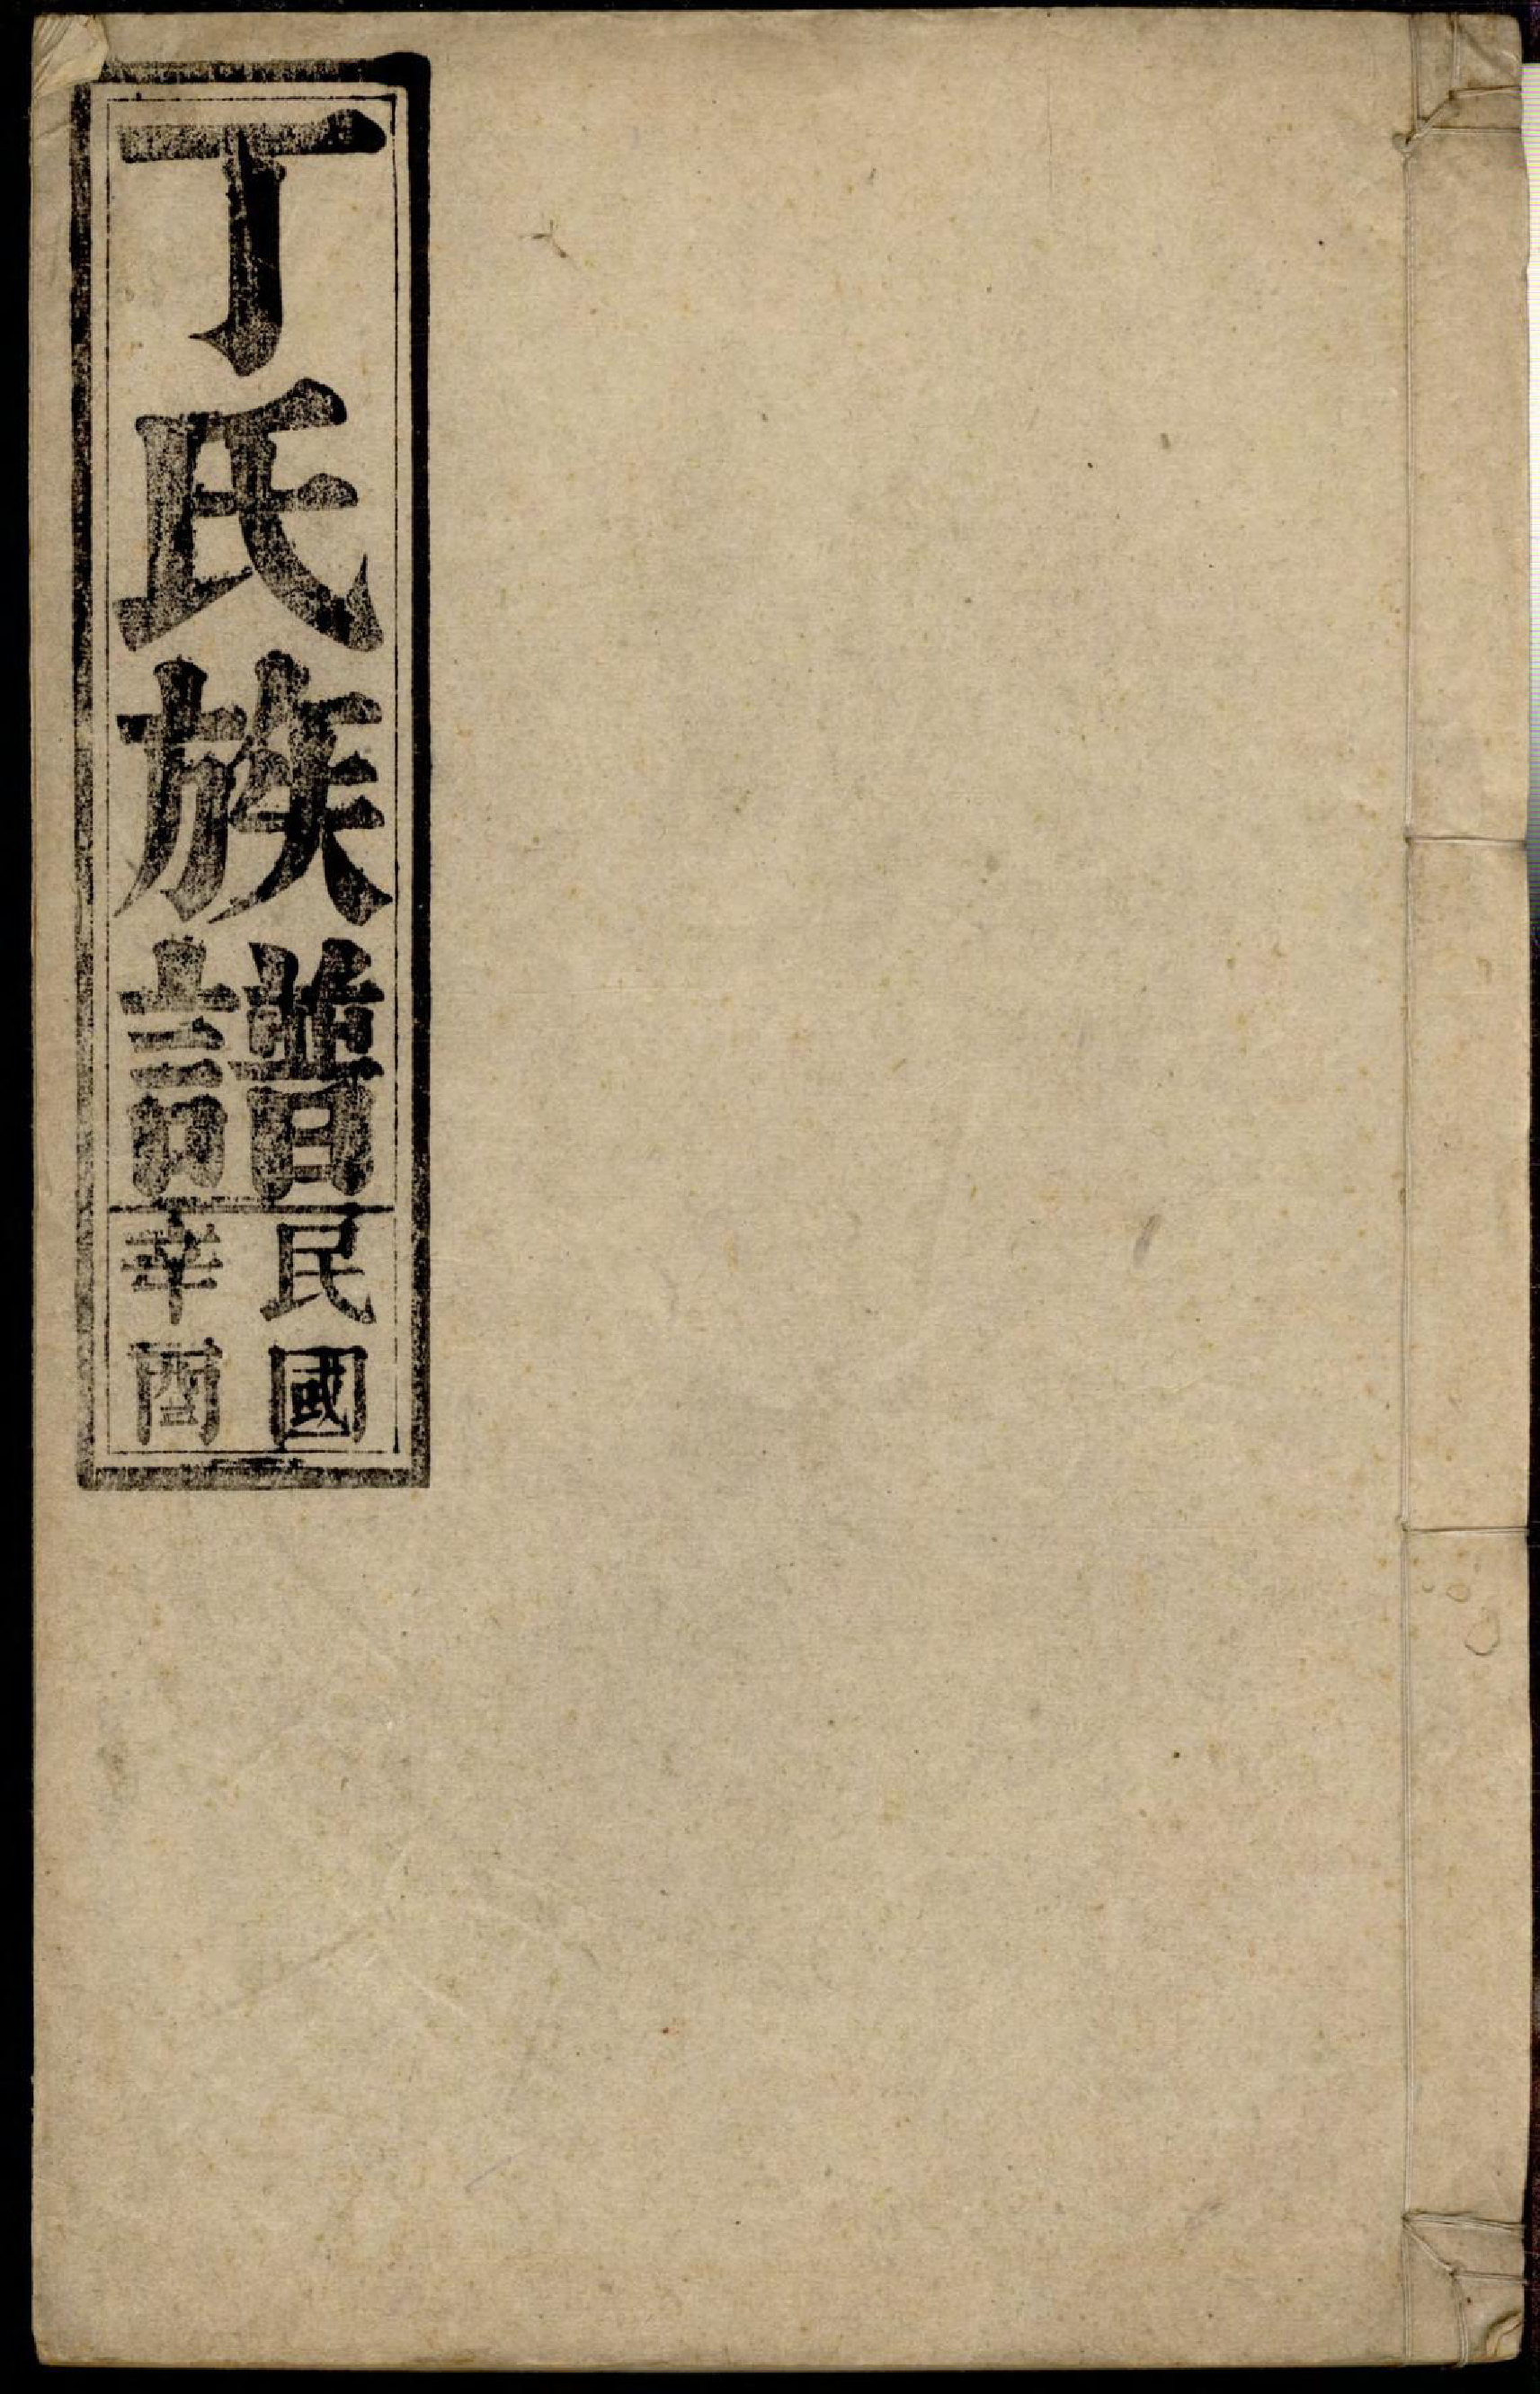 丁氏族譜
民國
辛酉